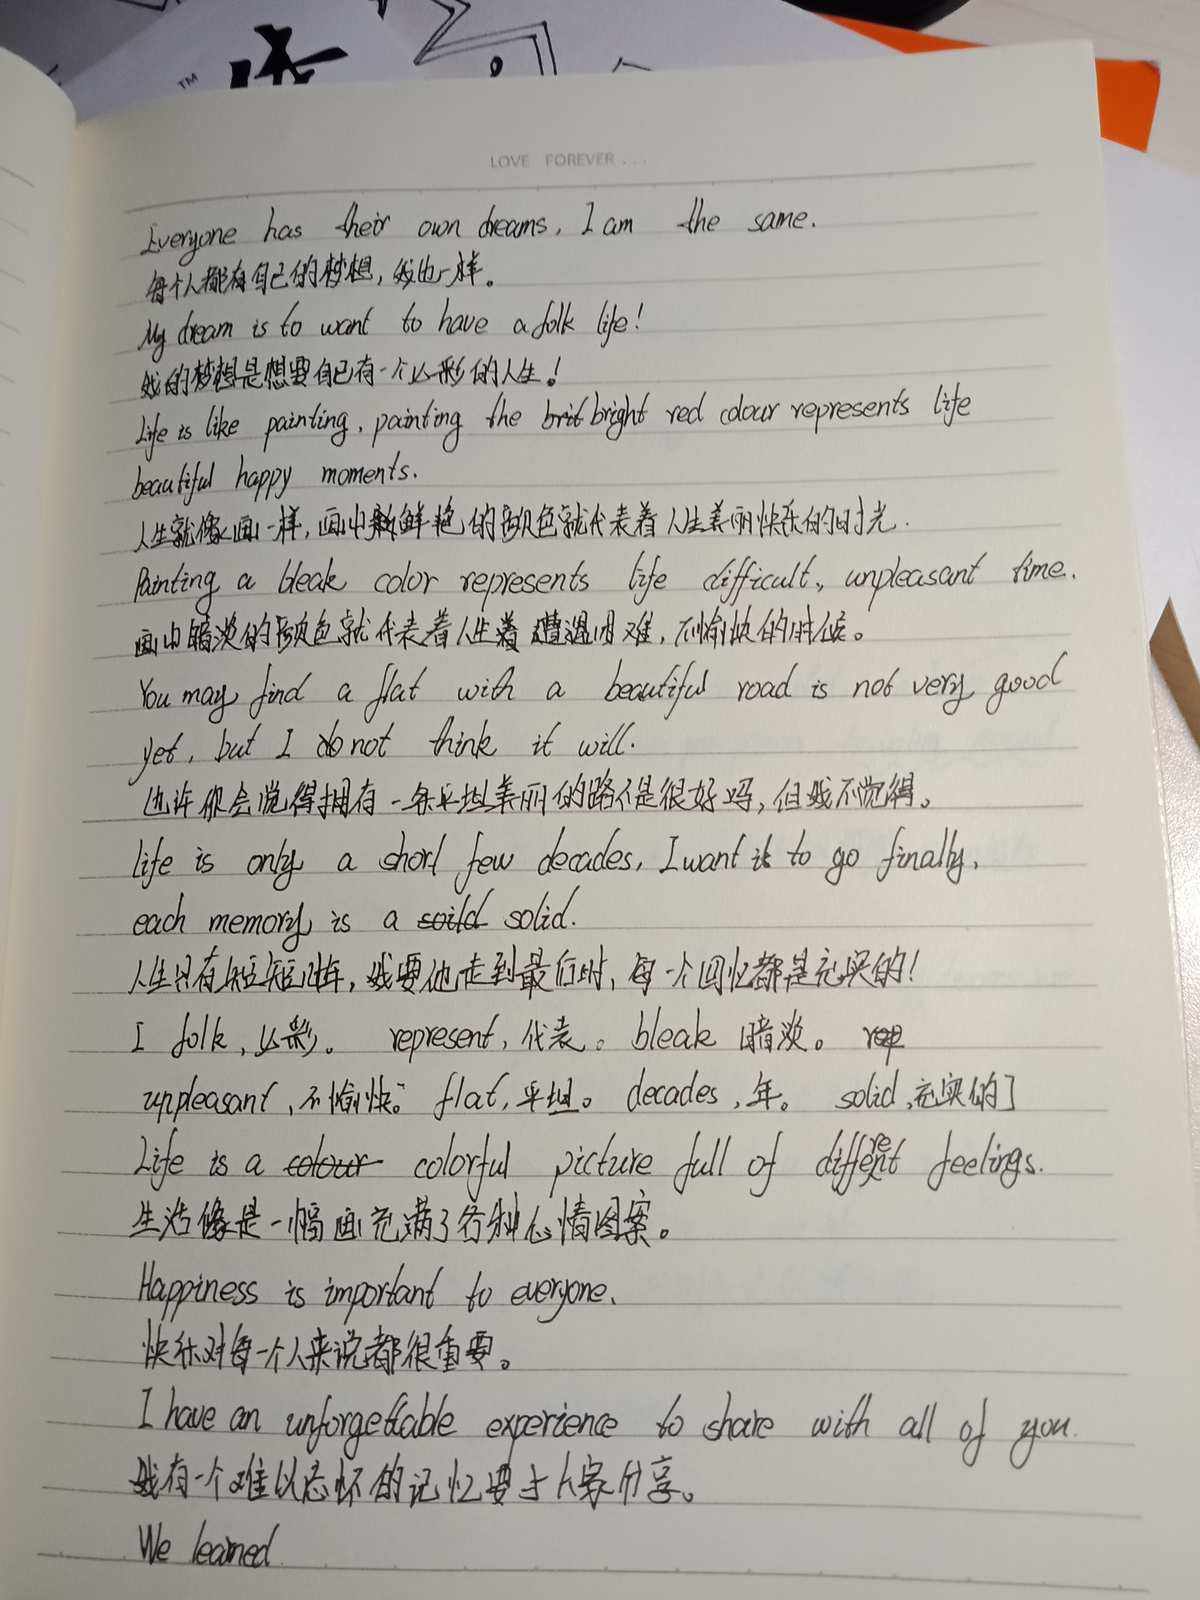 TM
LOVE FOREVER...
Everyone has their own dreams, I am the same.
每个人都有自己的梦想，我也一样。
My dream is to want to have a folk life!
我的梦想是想要自己有一个么彩的人生！
Life is like painting, painting the brit bright red colour represents life
beautiful happy moments.
人生就像画一样，画中鲜艳的颜色就代表着人生美丽快乐的时光.
Painting a bleak color represents life difficult, unpleasant time.
画中暗淡的颜色就代表着人生着遭遇困难，不愉快的时候。
You may find a flat with a beautiful road is not very good
yet, but I do not think it will.
也许你会觉得拥有一条平坦美丽的路不是很好吗，但我不觉得。
life is only a short few decades, I want it to go finally,
each memory is a soild solid.
人生只有短短几年，我要他走到最后时，每一个回忆都是充实的！
I folk，么彩。 represent，代表。 bleak 暗淡。 rep
unpleasant，不愉快。 flat，平坦。 decades，年。 solid，充实的]
Life is a colour colorful picture full of different feelings.
生活像是一幅画充满了各种心情图案。
Happiness is important to everyone.
快乐对每一个人来说都很重要。
I have an unforgettable experience to share with all of you.
我有一个难以忘怀的记忆要于大家分享。
We learned